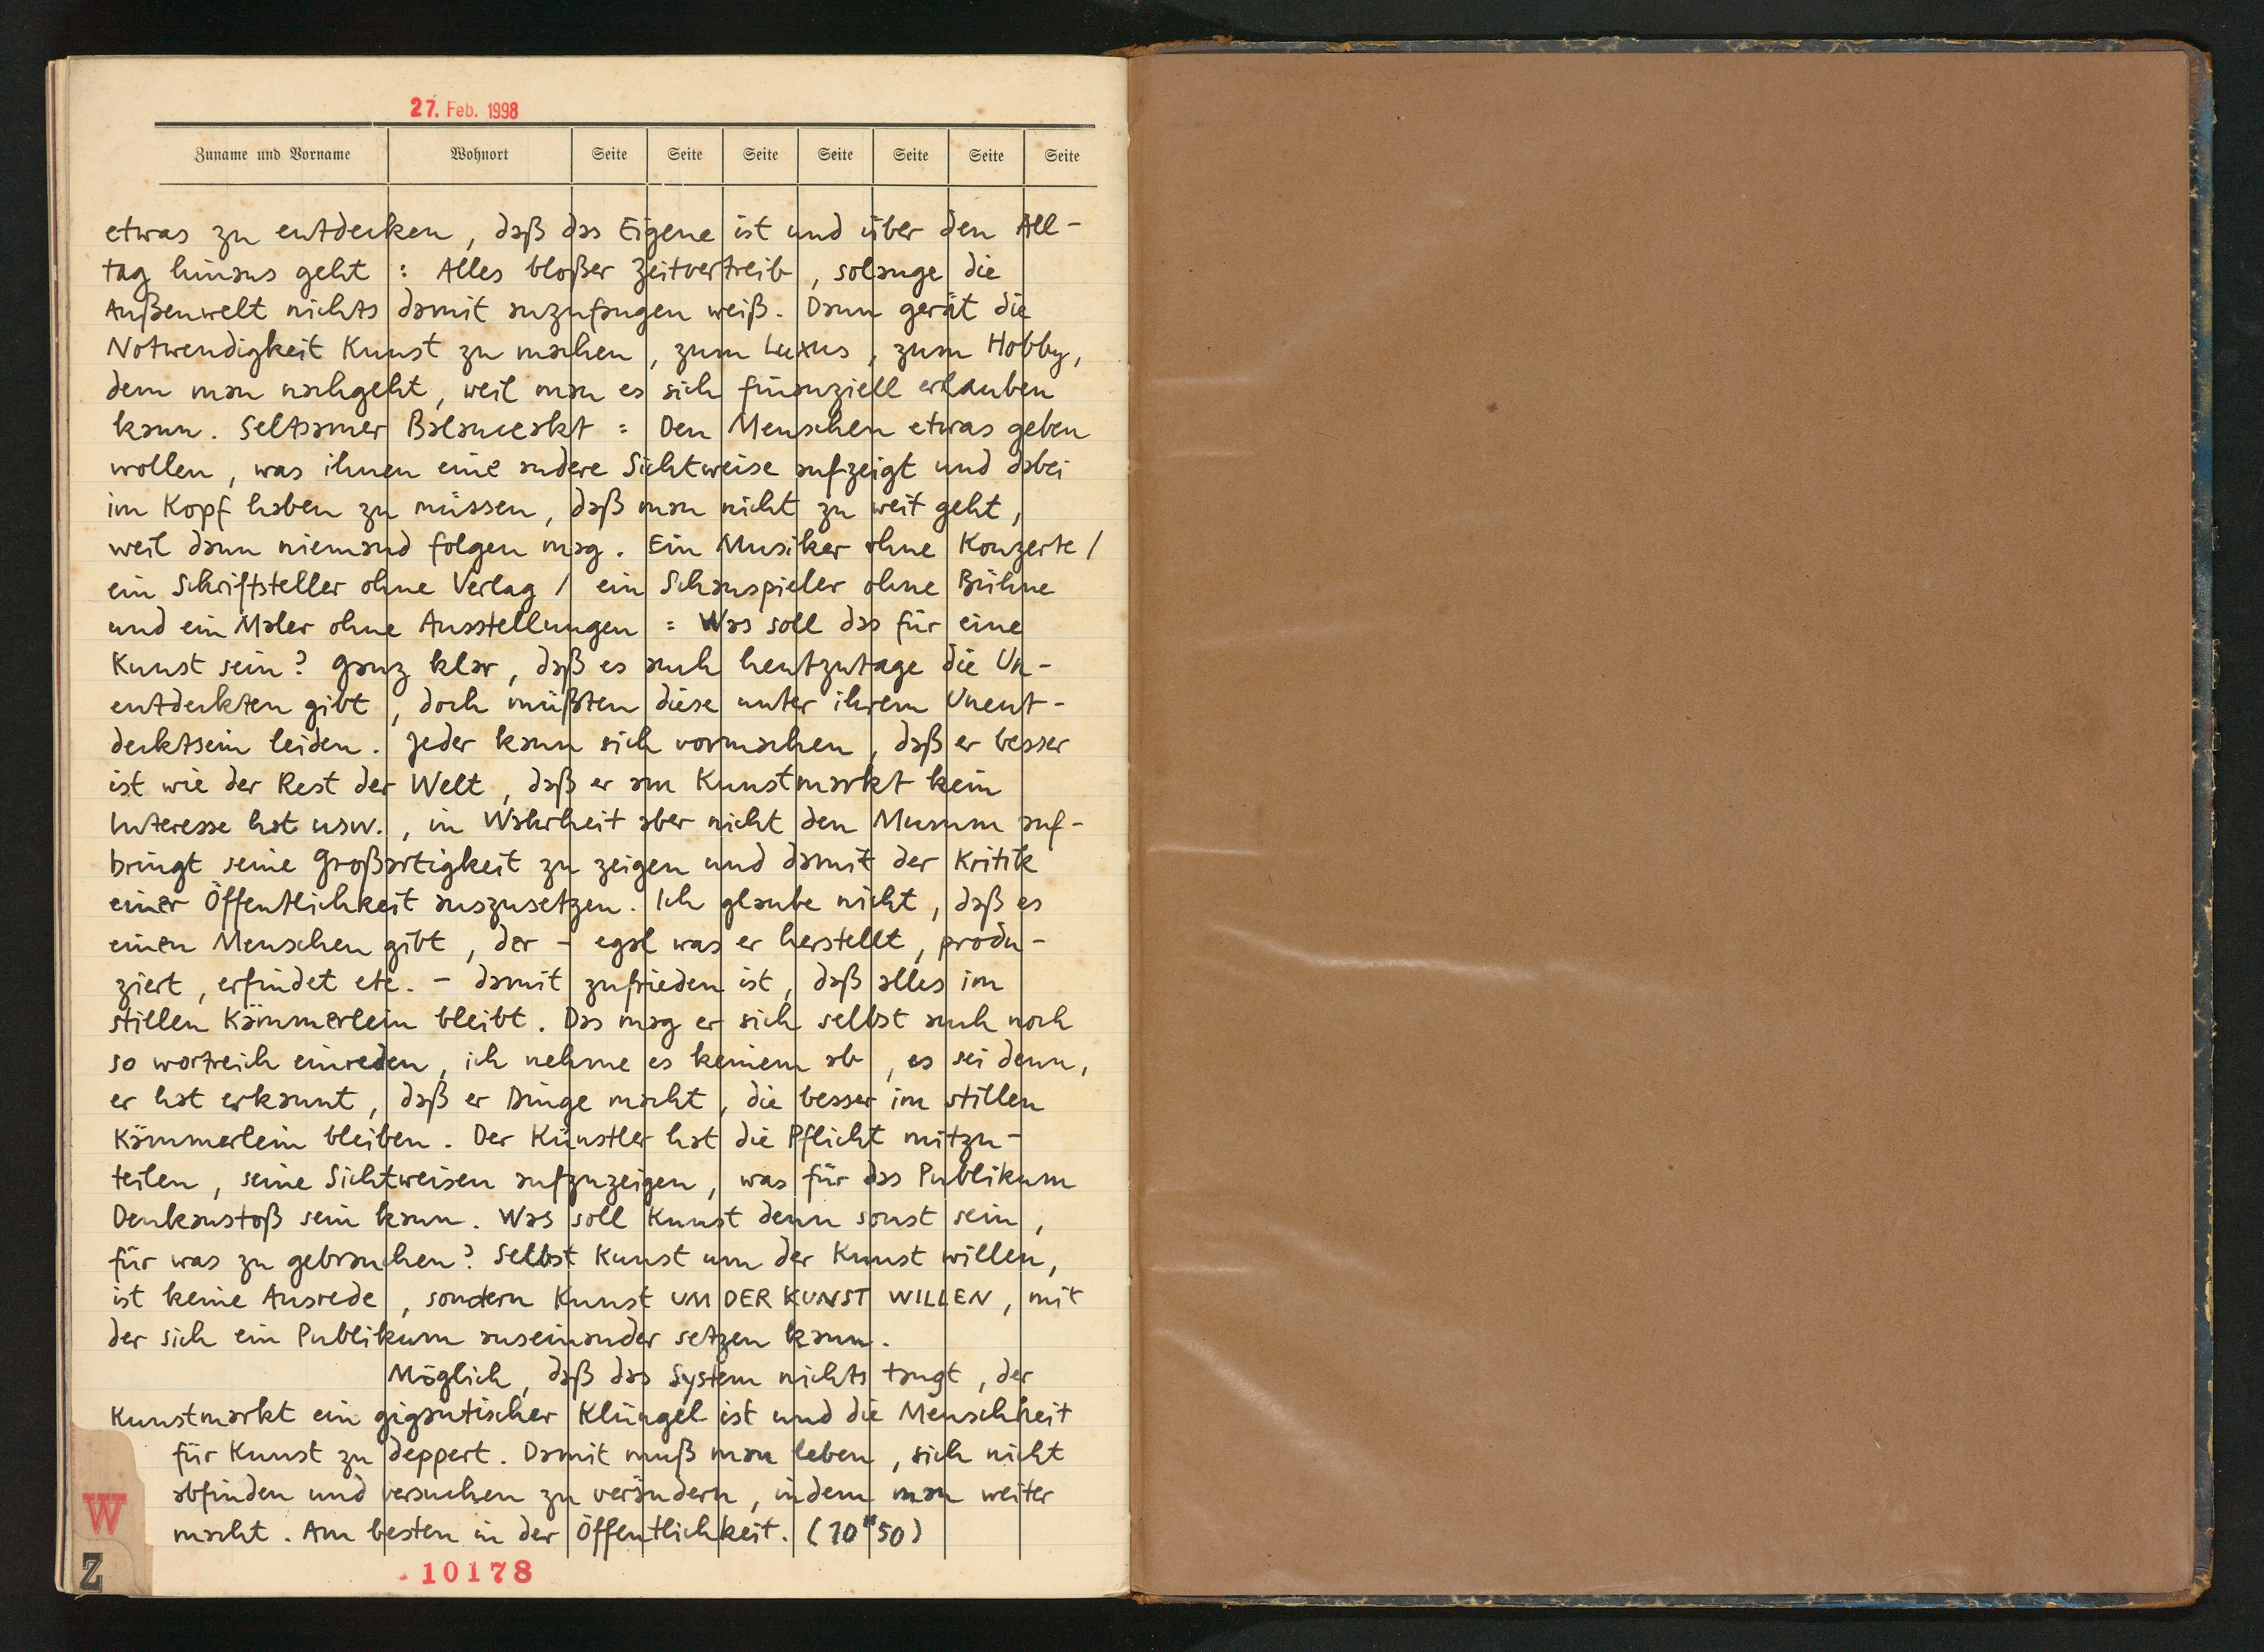 27. Feb. 1998
Zuname und Vorname Wohnort Seite Seite Seite Seite Seite Seite Seite
etwas zu entdecken, daß das Eigene ist und über den All-
tag hinaus geht : Alles bloßer Zeitvertreib, solange die
Außenwelt nichts damit anzufangen weiß. Dann gerät die
Notwendigkeit Kunst zu machen, zum Luxus, zum Hobby,
dem man nachgeht, weil man es sich finanziell erlauben
kann. Seltsamer Balanceakt : Den Menschen etwas geben
wollen, was ihnen eine andere Sichtweise aufzeigt und dabei
im Kopf haben zu müssen, daß man nicht zu weit geht,
weil dann niemand folgen mag. Ein Musiker ohne Konzerte /
ein Schriftsteller ohne Verlag / ein Schauspieler ohne Bühne
und ein Maler ohne Ausstellungen : Was soll das für eine
Kunst sein? Ganz klar, daß es auch heutzutage die Un-
entdeckten gibt, doch müßten diese unter ihrem Unent-
decktsein leiden. Jeder kann sich vormachen, daß er besser
ist wie der Rest der Welt, daß er am Kunstmarkt kein
Interesse hat usw., in Wahrheit aber nicht den Mumm auf-
bringt seine Großartigkeit zu zeigen und damit der Kritik
einer Öffentlichkeit auszusetzen. Ich glaube nicht, daß es
einen Menschen gibt, der - egal was er herstellt, produ-
ziert, erfindet etc. - damit zufrieden ist, daß alles im
stillen Kämmerlein bleibt. Das mag er sich selbst auch noch
so wortreich einreden, ich nehme es keinem ab, es sei denn,
er hat erkannt, daß er Dinge macht, die besser im stillen
Kämmerlein bleiben. Der Künstler hat die Pflicht mitzu-
teilen, seine Sichtweisen aufzuzeigen, was für das Publikum
Denkanstoß sein kann. Was soll Kunst denn sonst sein,
für was zu gebrauchen? Selbst Kunst um der Kunst willen,
ist keine Ausrede, sondern Kunst UM DER KUNST WILLEN, mit
der sich ein Publikum auseinander setzen kann.
Möglich, daß das System nichts taugt, der
Kunstmarkt ein gigantischer Klüngel ist und die Menschheit
für Kunst zu deppert. Damit muß man leben, sich nicht
abfinden und versuchen zu verändern, indem man weiter
macht. Am besten in der Öffentlichkeit. (10"50)
W
Z
10178